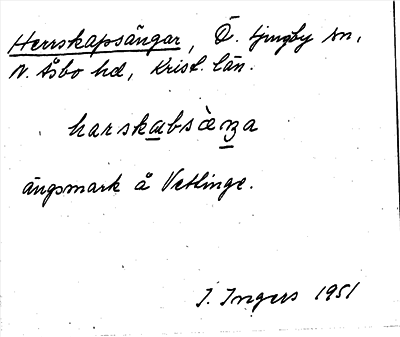 Herrskapsängar, Ö. Ljungby sn,
N. Åsbo hd, Krist. län.
harskabsàŋa
ängsmark å Vetlinge.
I. Ingers 1951